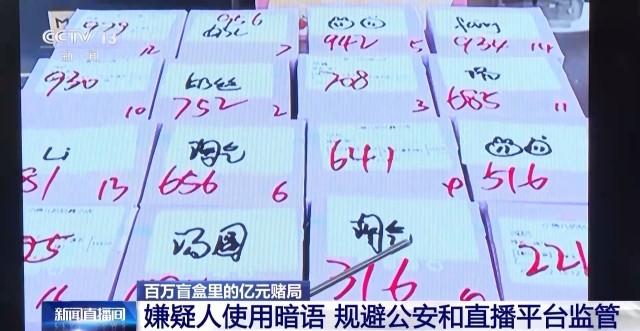 CCTV 13
新闻
979
12
7
942
5
fang
934
14
930
10
奶丝
752
2
708
3
685
11
Li
81
13
陶气
656
6
641
516
25
汤圆
316
221
百万盲盒里的亿元赌局
新闻直播间
嫌疑人使用暗语 规避公安和直播平台监管